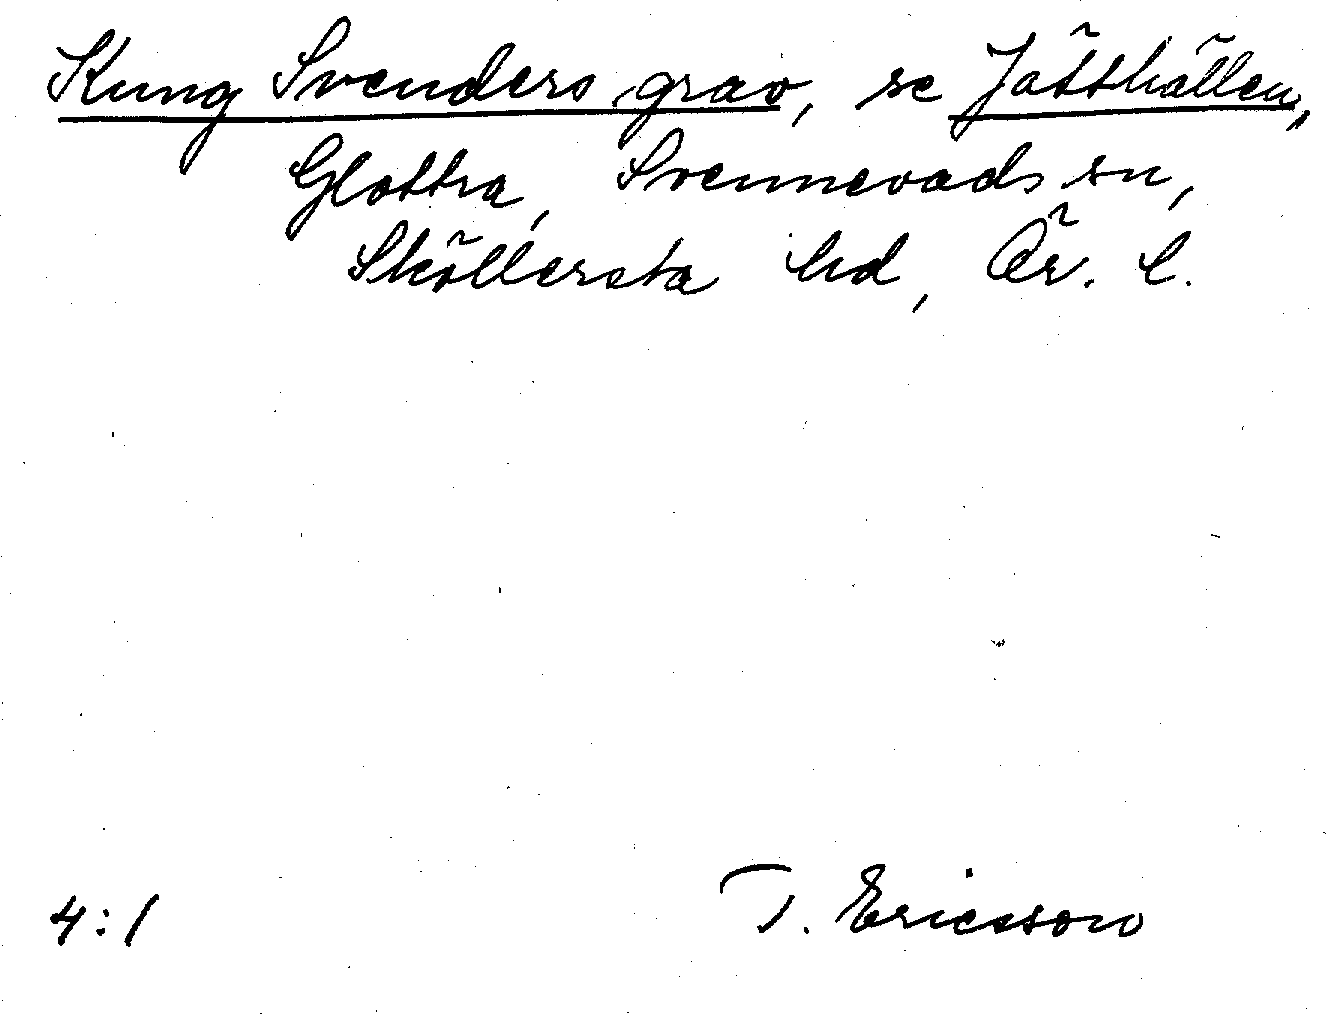 Kung Svenders grav, se Jätthällen,
Glottra, Svennevads sn,
Sköllersta hd, Ör. l.
4:1
T. Ericsson